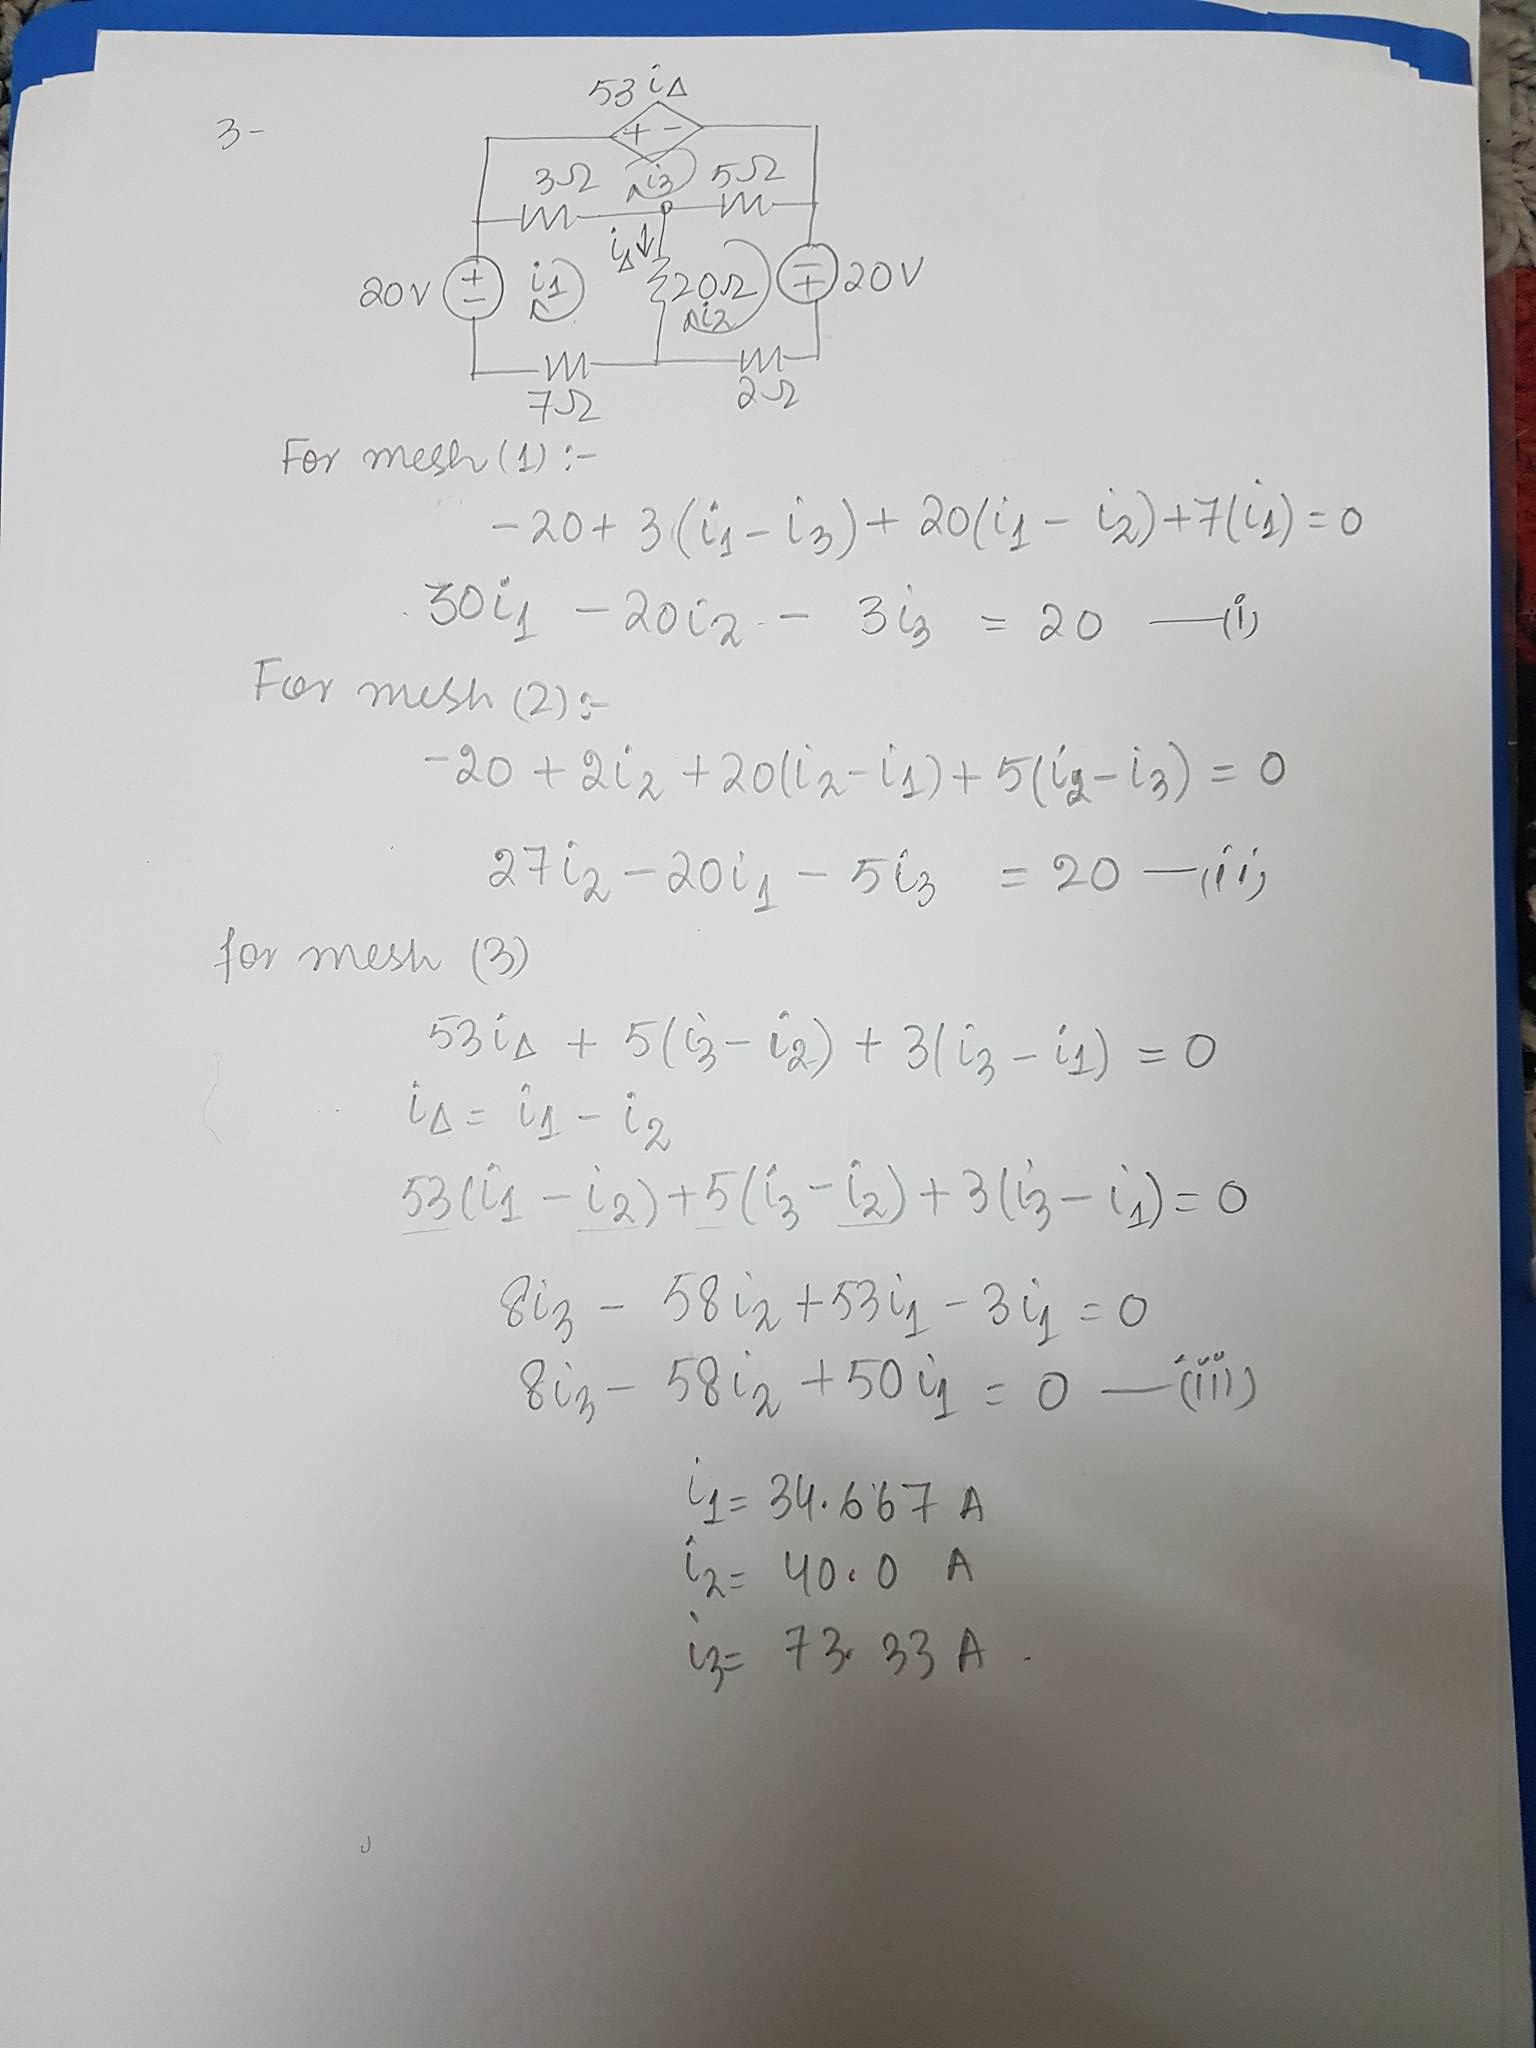 53 iΔ
3-
+ -
3Ω i3 5Ω
iΔ
20V + - i1 20Ω - + 20V
i2
7Ω 2Ω
For mesh (1) :-
-20 + 3(i1 - i3) + 20(i1 - i2) + 7(i1) = 0
30i1 - 20i2 - 3i3 = 20 —(i)
For mesh (2) :-
-20 + 2i2 + 20(i2 - i1) + 5(i2 - i3) = 0
27i2 - 20i1 - 5i3 = 20 —(ii)
for mesh (3)
53iΔ + 5(i3 - i2) + 3(i3 - i1) = 0
iΔ = i1 - i2
53(i1 - i2) + 5(i3 - i2) + 3(i3 - i1) = 0
8i3 - 58i2 + 53i1 - 3i1 = 0
8i3 - 58i2 + 50i1 = 0 —(iii)
i1 = 34.667 A
i2 = 40.0 A
i3 = 73.33 A.